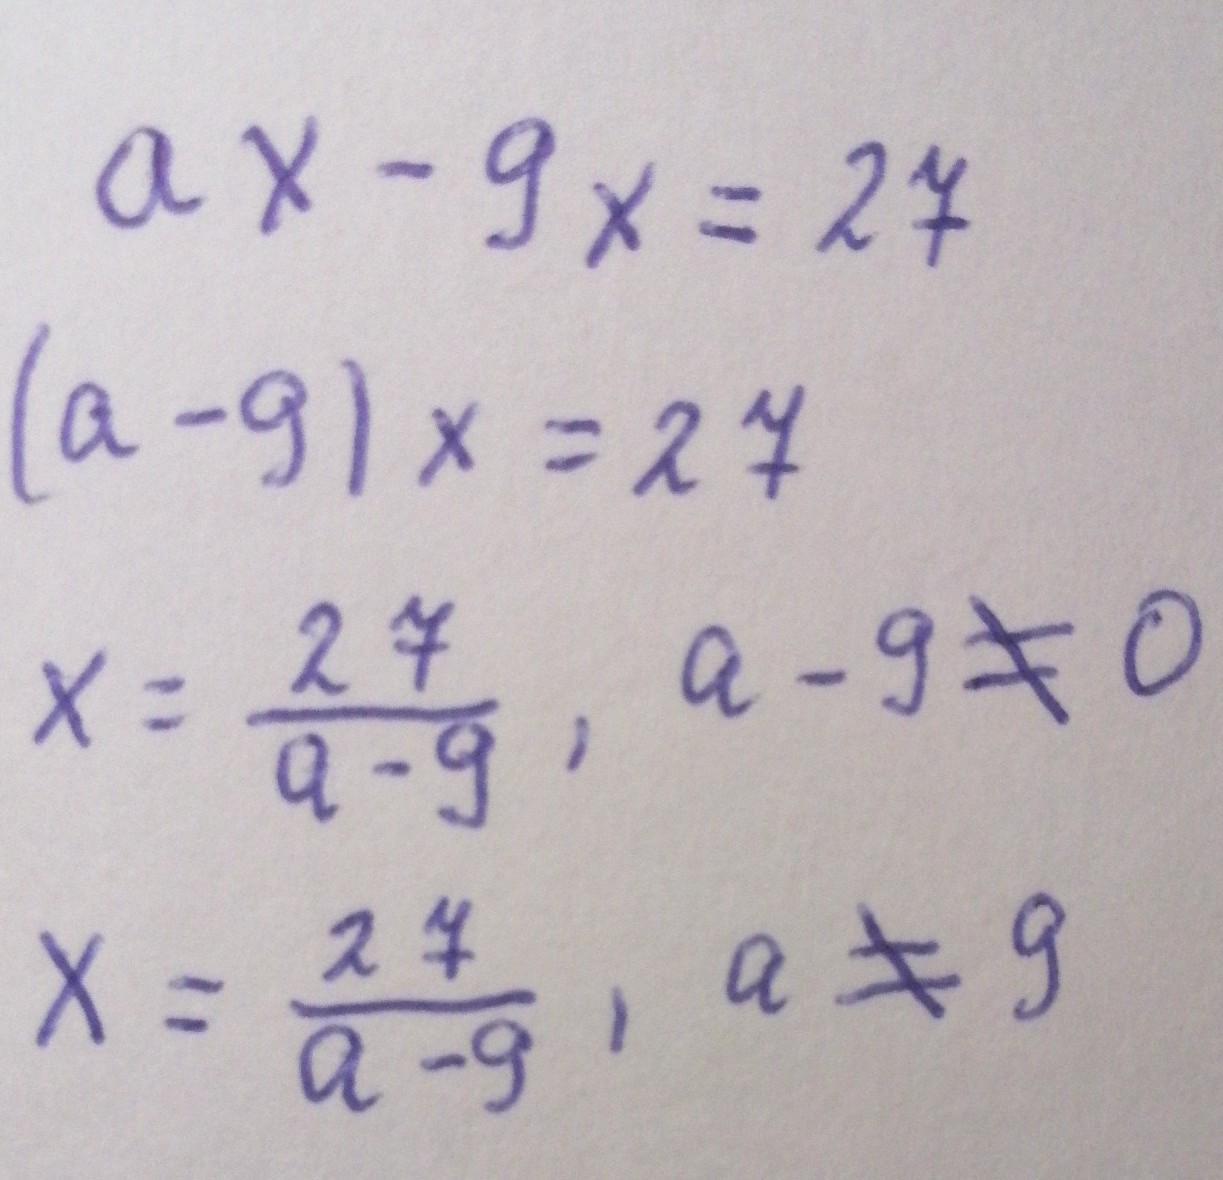 ax - 9x = 27
(a - 9) x = 27
x = 27/(a - 9) , a - 9 ≠ 0
x = 27/(a - 9) , a ≠ 9